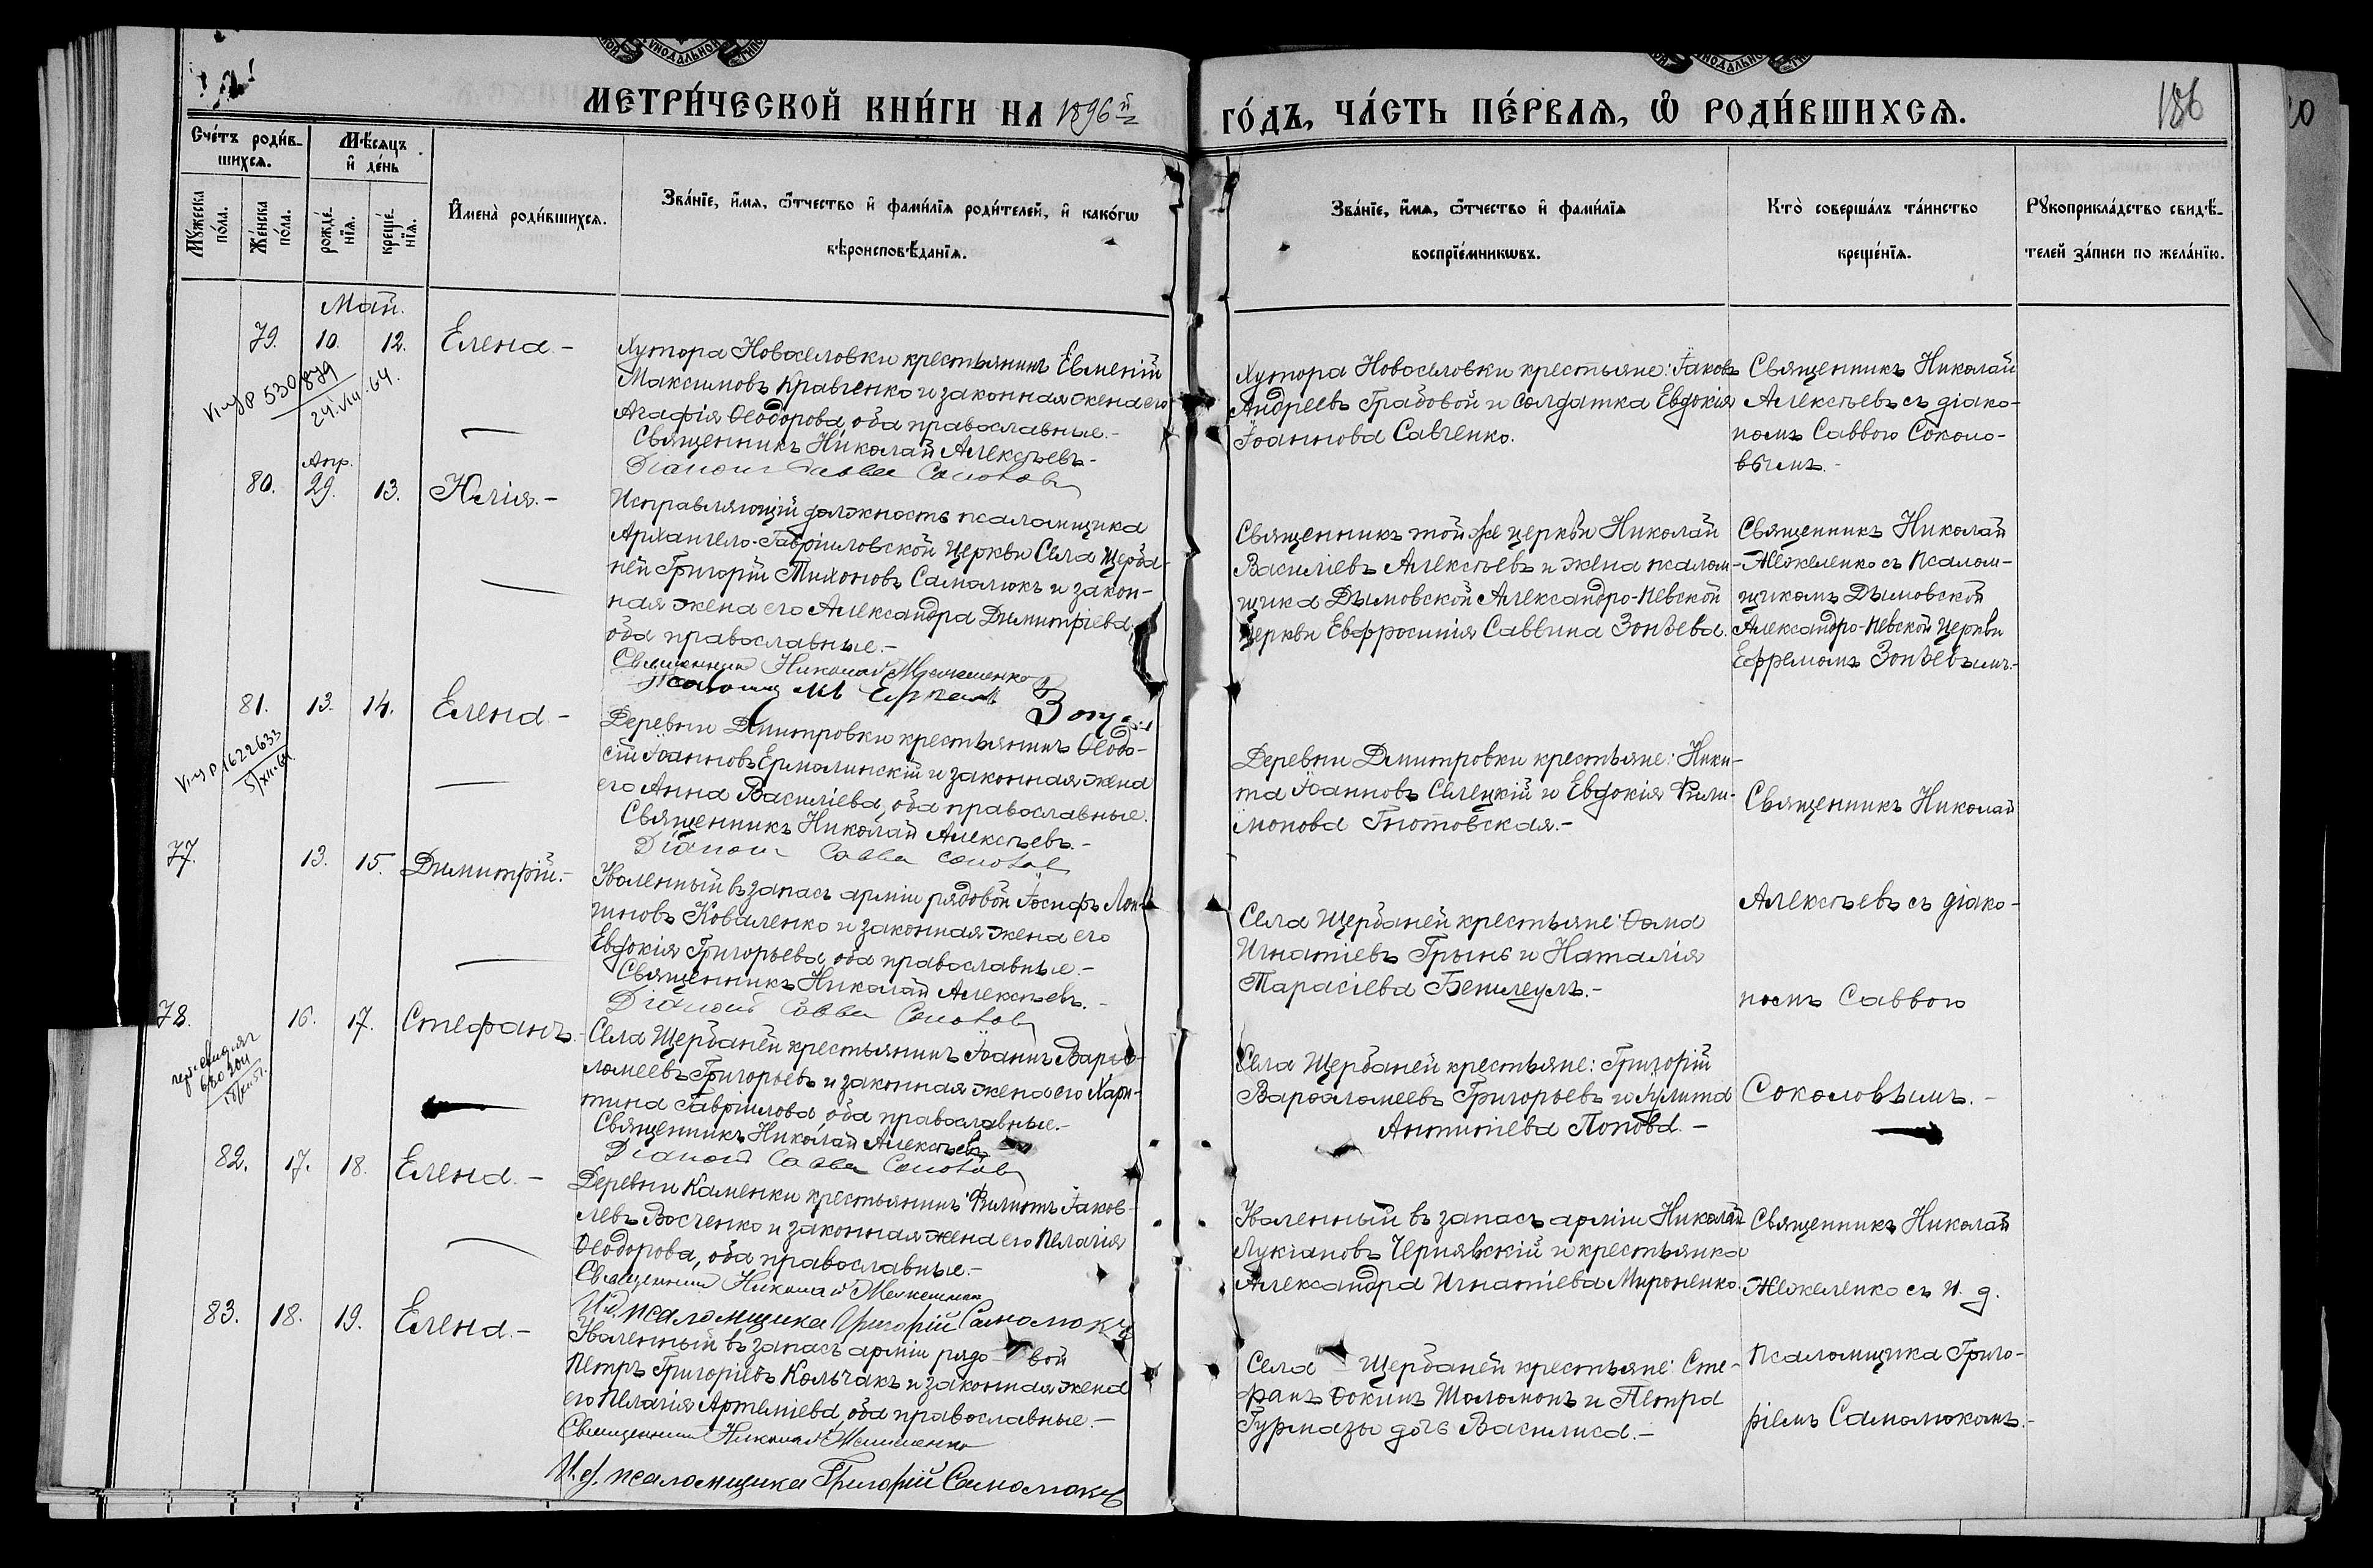 МЕТРИ́ЧЕСКОЙ КНИ́ГИ НА 1896й
ГО́ДЪ, ЧА́СТЬ ПЕ́РВАѦ, Ѡ РОДИ́ВШИХСѦ.
186
Сче́тъ роди́в-
шихсѧ.
Мѣ́сѧцъ
и де́нь
Му́жеска
по́ла.
Же́нска
по́ла.
рожде́-
нїѧ.
креще́-
нїѧ.
Имена̀ роди́вшихсѧ.
Зва́нїе, и́мѧ, ѻ́тчество и фами́лїѧ роди́телей, и како́гѡ
вѣроисповѣ́данїѧ.
Зва́нїе, и́мѧ, ѻ́тчество и фами́лїѧ
воспрїе́мникѡвъ.
Кто̀ соверша́лъ та́инство
креще́нїѧ.
Рꙋкоприкла́дство свидѣ́-
телей за́писи по жела́нїю.
Май.
79. 10. 12. Елена.-
Хутора Новоселовки крестьянинъ Евменій
Максимовъ Кравченко и законная жена его
Агафія Ѳеодорова, оба православные.-
Священникъ Николай Алексѣевъ.-
Діаконъ Савва Соколовъ
Хутора Новоселовки крестьяне: Іаковъ
Андреевъ Градовой и солдатка Евдокія
Іоаннова Савченко.
Священникъ Николай
Алексѣевъ съ діако-
номъ Саввою Соколо-
вымъ.-
530879
24.VIII.64.
Апр.
80. 29. 13. Юлія.-
Исправляющій должность псаломщика
Архангело-Гавріиловской Церкви Села Щерба-
ней Григорій Тихоновъ Самолюкъ и закон-
ная жена его Александра Димитріева,
оба православные.-
Священникъ Николай
Священникъ той же церкви Николай
Василіевъ Алексѣевъ и жена псалом-
щика Дымовской Александро-Невской
Церкви Евфросинія Саввина Зонѣева.
Священникъ Николай
Межеленко съ Псалом-
щикомъ Дымовской
Александро-Невской Церкви
Ефремомъ Зонѣевымъ.-
81. 13. 14. Елена-
Деревни Димитровки крестьянинъ Ѳеодо-
сій Іоанновъ Ермолинскій и законная жена
его Анна Василіева, оба православные.
Священникъ Николай Алексѣевъ.-
Діаконъ Савва Соколовъ
Деревни Димитровки крестьяне: Ники-
та Іоанновъ Селецкій и Евдокія Фили-
монова Гнотовская.-
Священникъ Николай
1622633
5/XII-64
77. 13. 15. Димитрій.-
Уволенный въ запасъ арміи рядовой Іосифъ Лон-
гиновъ Коваленко и законная жена его
Евдокія Григорьева, оба православные.-
Священникъ Николай Алексѣевъ.-
Діаконъ Савва Соколовъ
Села Щербаней крестьяне: Ѳома
Игнатіевъ Грынь и Наталія
Тарасіева Бешлеулъ.-
Алексѣевъ съ діако-
номъ Саввою
78. 16. 17. Стефанъ.-
Села Щербаней крестьянинъ Іоаннъ Варѳо-
ломеевъ Григорьевъ и законная жена его Хари-
тина Гавріилова, оба православные.-
Священникъ Николай Алексѣевъ
Діаконъ Савва Соколовъ
Села Щербаней крестьяне: Григорій
Варѳоломеевъ Григорьевъ и Іулита
Антипіева Попова.-
Соколовымъ.-
82. 17. 18. Елена.-
Деревни Каменки крестьянинъ Филиппъ Іаков-
левъ Восченко и законная жена его Пелагія
Ѳеодорова, оба православные.-
Священникъ Николай
И.д. псаломщика Григорій Самолюкъ
Уволенный въ запасъ арміи Николай
Лукіановъ Чернявскій и крестьянка
Александра Игнатіева Мироненко.
Священникъ Николай
Межеленко съ И. д.
83. 18. 19. Елена.-
Уволенный въ запасъ арміи рядовой
Петръ Григоріевъ Кольчакъ и законная жена
его Пелагія Артеміева, оба православные.-
Священникъ Николай
И.д. псаломщика Григорій Самолюкъ
Села Щербаней крестьяне: Сте-
фанъ Ѳокинъ Шоломонъ и Петра
Гурмазы дочь Василиса.-
Псаломщика Григо-
ріемъ Самолюкомъ.-